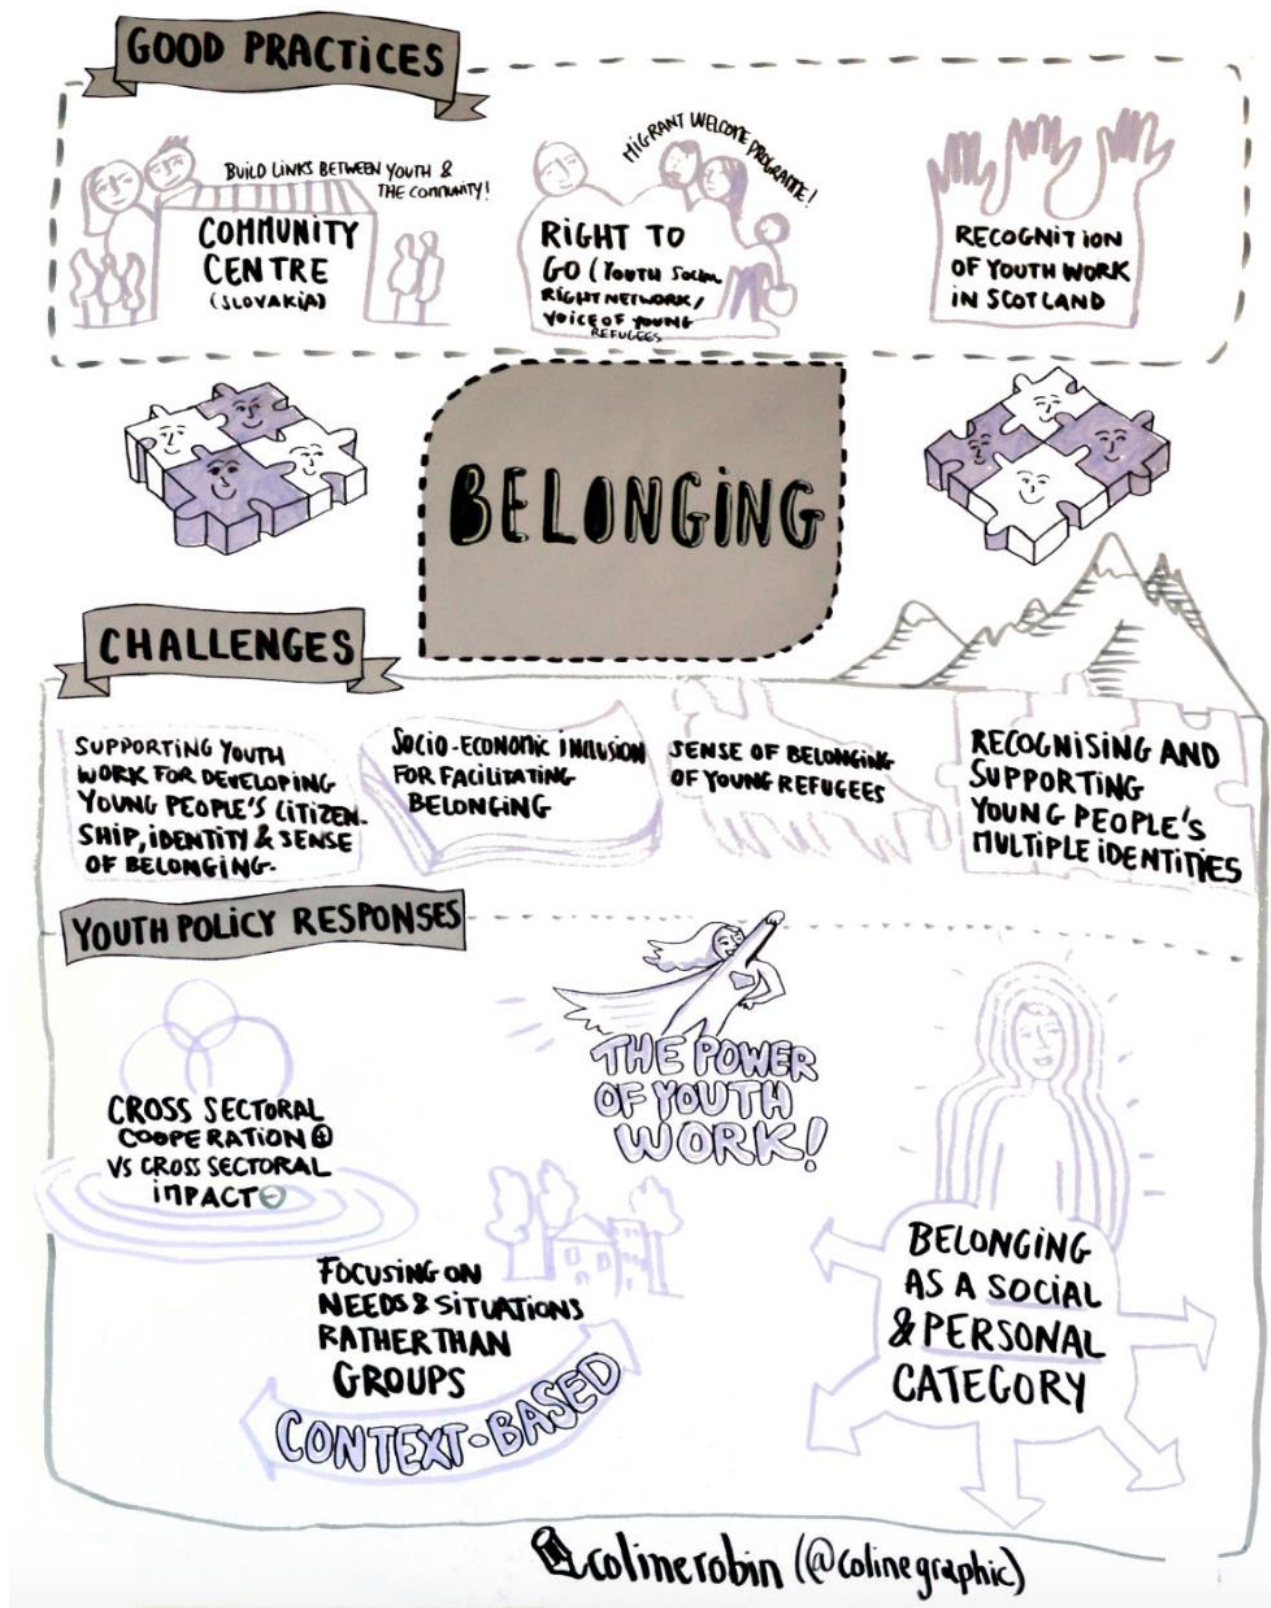 GOOD PRACTiCES
BUiLD LINKS BETWEEN YOUTH &
THE COMMUNITY!
COMMUNiTY
CENTRE
(SLOVAKiA)
MIGRANT WELCOME PROGRAMME!
RiGHT TO
GO (YOUTH SOCIAL
RIGHT NETWORK/
VOICE OF YOUNG
REFUGEES
RECOGNITION
OF YOUTH WORK
iN SCOTLAND
BELONGiNG
CHALLENGES
SUPPORTiNG YOUTH
WORK FOR DEVELOPiNG
YOUNG PEOPLE'S CiTiZEN-
SHiP, iDENTiTY & SENSE
OF BELONGiNG.
SOCiO-ECONOMiC iNCLUSiON
FOR FACiLiTATiNG
BELONGiNG
SENSE OF BELONGiNG
OF YOUNG REFUGEES
RECOGNiSiNG AND
SUPPORTiNG
YOUNG PEOPLE'S
MULTiPLE iDENTiTiES
YOUTH POLiCY RESPONSES
THE POWER
OF YOUTH
WORK!
CROSS SECTORAL
COOPERATiON ⊕
VS CROSS SECTORAL
iMPACT ⊖
FOCUSiNG ON
NEEDS & SiTUATiONS
RATHER THAN
GROUPS
CONTEXT-BASED
BELONGiNG
AS A SOCiAL
& PERSONAL
CATEGORY
colinerobin (@colinegraphic)